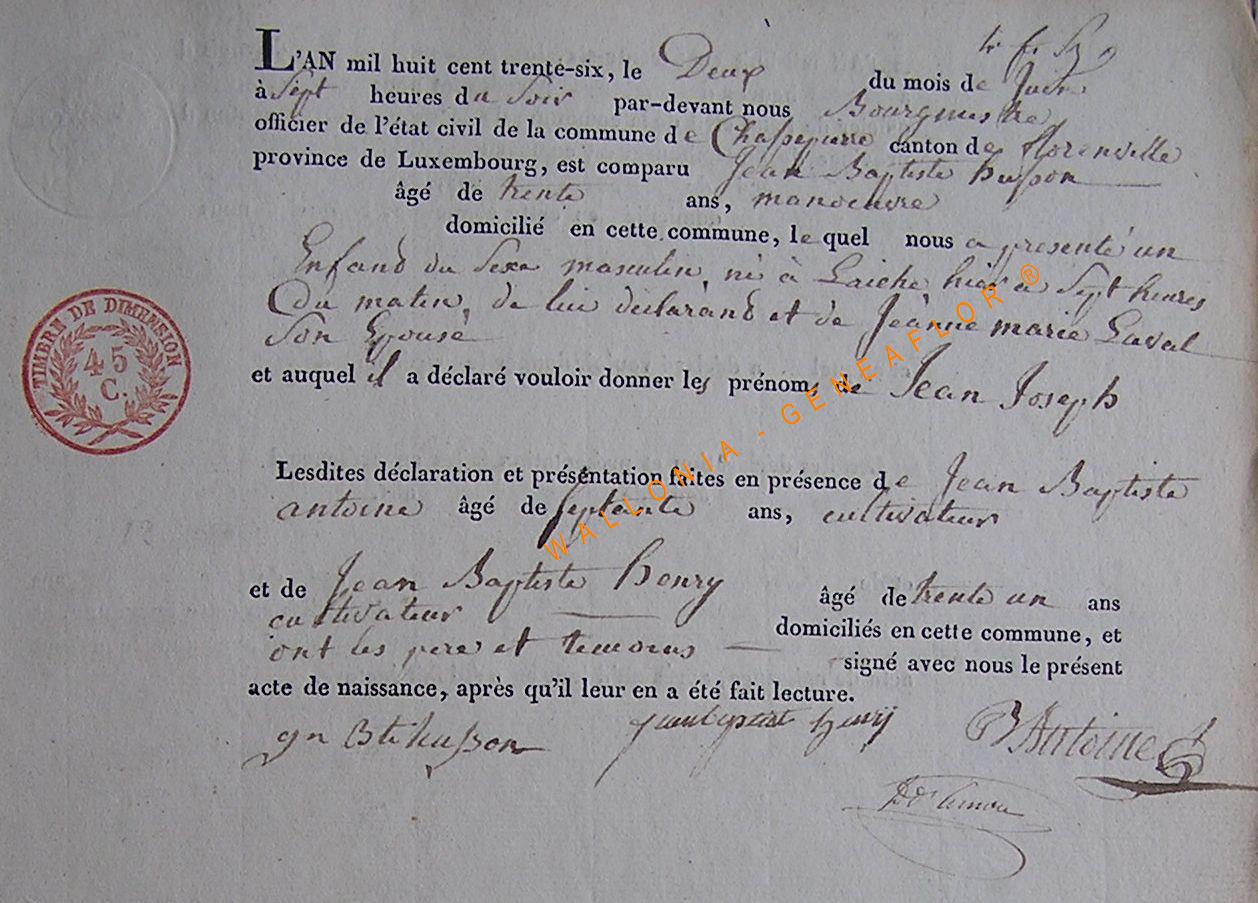 L'AN mil huit cent trente-six, le Deux du mois de Juin
à Sept heures du Soir par-devant nous Bourgmestre
officier de l'état civil de la commune de Chassepierre canton de florenville
province de Luxembourg, est comparu Jean Baptiste husson
âgé de trente ans, manoeuvre
domicilié en cette commune, le quel nous a presenté un
Enfand du Sexe masculin, né à Laiche hier a Sept heures
Du matin, de lui déclarand et de Jeanne marie Laval
Son Epouse
et auquel il a déclaré vouloir donner les prénoms de Jean Joseph
Lesdites déclaration et présentation faites en présence de Jean Baptiste
antoine âgé de septante ans, cultivateur
et de Jean Baptiste henry âgé de trente un ans
cultivateur
domiciliés en cette commune, et
ont les pere et temoins
signé avec nous le présent
acte de naissance, après qu'il leur en a été fait lecture.
gn Bti husson
jeanbaptist henrij
B Antoine
TIMBRE DE DIMENSION
45
C.
WALLONIA - GENEAFLOR ®